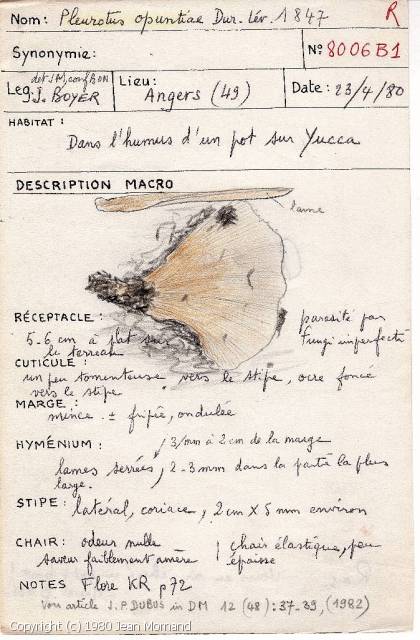 Nom: Pleurotus opuntiae Dur. Lév. 1847 R
Synonymie:
N° 8006B1
det JM, conf BON
Leg. J.J. BOYER
Lieu: Angers (49)
Date: 23/4/80
HABITAT:
Dans l'humus d'un pot sur Yucca
DESCRIPTION MACRO
lame
RÉCEPTACLE:
5-6 cm à plat sur
le terreau
parasité par
Fungi imperfecti
CUTICULE:
un peu tomenteuse vers le stipe, ocre foncé
vers le stipe
MARGE:
mince ± fripée, ondulée
HYMÉNIUM: 3/mm à 2 cm de la marge
lames serrées, 2-3 mm dans la partie la plus
large.
STIPE: latéral, coriace, 2 cm X 5 mm environ
CHAIR: odeur nulle
saveur faiblement amère
chair élastique, peu
épaisse
NOTES Flore KR p72
Voir article J.P. DUBUS in DM 12 (48): 37-39, (1982)
Copyright (c) 1980 Jean Mornand